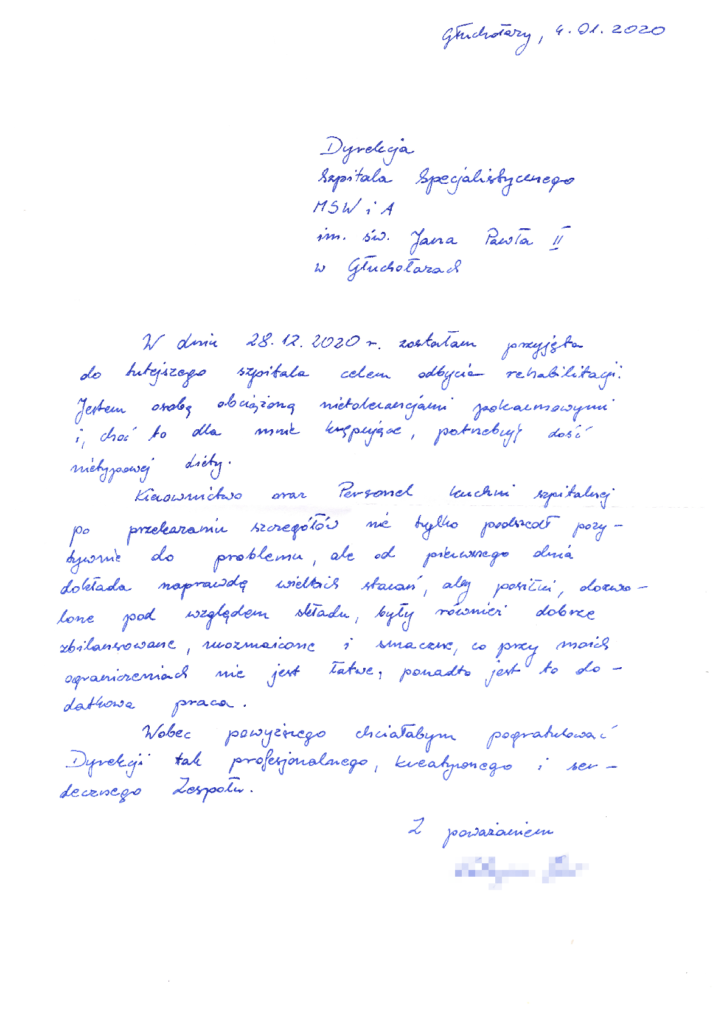 Głuchołazy, 4.01.2020
Dyrekcja
Szpitala Specjalistycznego
MSW i A
im. św. Jana Pawła II
w Głuchołazach
W dniu 28.12.2020 r. zostałam przyjęta
do tutejszego szpitala celem odbycia rehabilitacji.
Jestem osobą obciążoną nietolerancjami pokarmowymi
i, choć to dla mnie krępujące, potrzebuję dość
nietypowej diety.
Kierownictwo oraz Personel kuchni szpitalnej
po przekazaniu szczegółów nie tylko podszedł pozy-
tywnie do problemu, ale od pierwszego dnia
dokłada naprawdę wielkich starań, aby posiłki, dozwo-
lone pod względem składu, były również dobrze
zbilansowane, urozmaicone i smaczne, co przy moich
ograniczeniach nie jest łatwe, ponadto jest to do-
datkowa praca.
Wobec powyższego chciałabym pogratulować
Dyrekcji tak profesjonalnego, kreatywnego i ser-
decznego Zespołu.
Z poważaniem